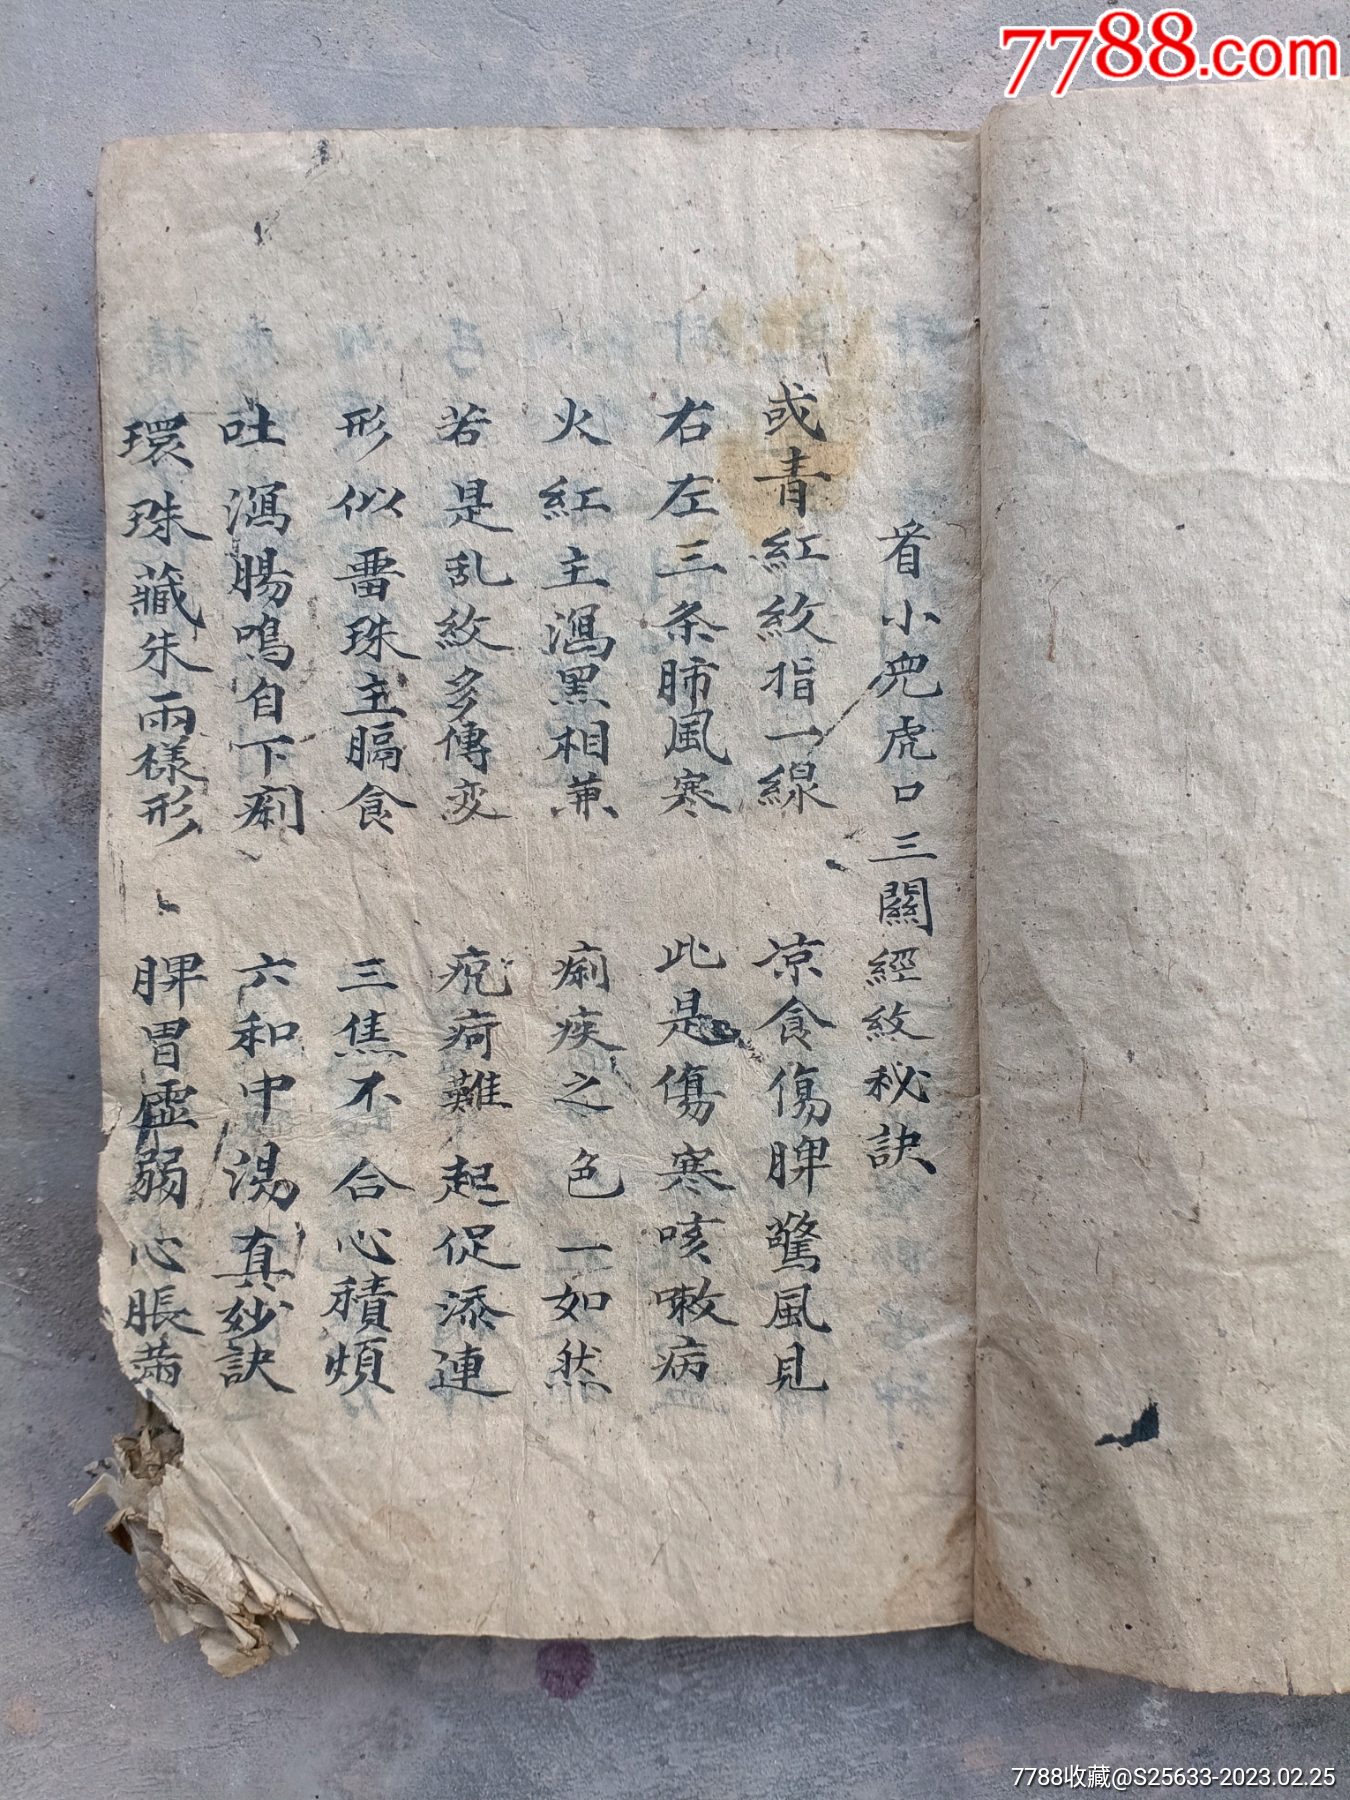 7788.com
看小兒虎口三關經紋秘訣
或青紅紋指一線　凉食傷脾驚風見
右左三条肺風寒　此是傷寒咳嗽病
火紅主瀉黑相兼　痢疾之色一如然
若是乱紋多傳变　疣疴難起促添連
形似雷珠主膈食　三焦不合心積煩
吐瀉腸鳴自下痢　六和中湯真妙訣
環珠藏朱兩樣形　脾胃虛弱心脹
7788收藏@S25633-2023.02.25